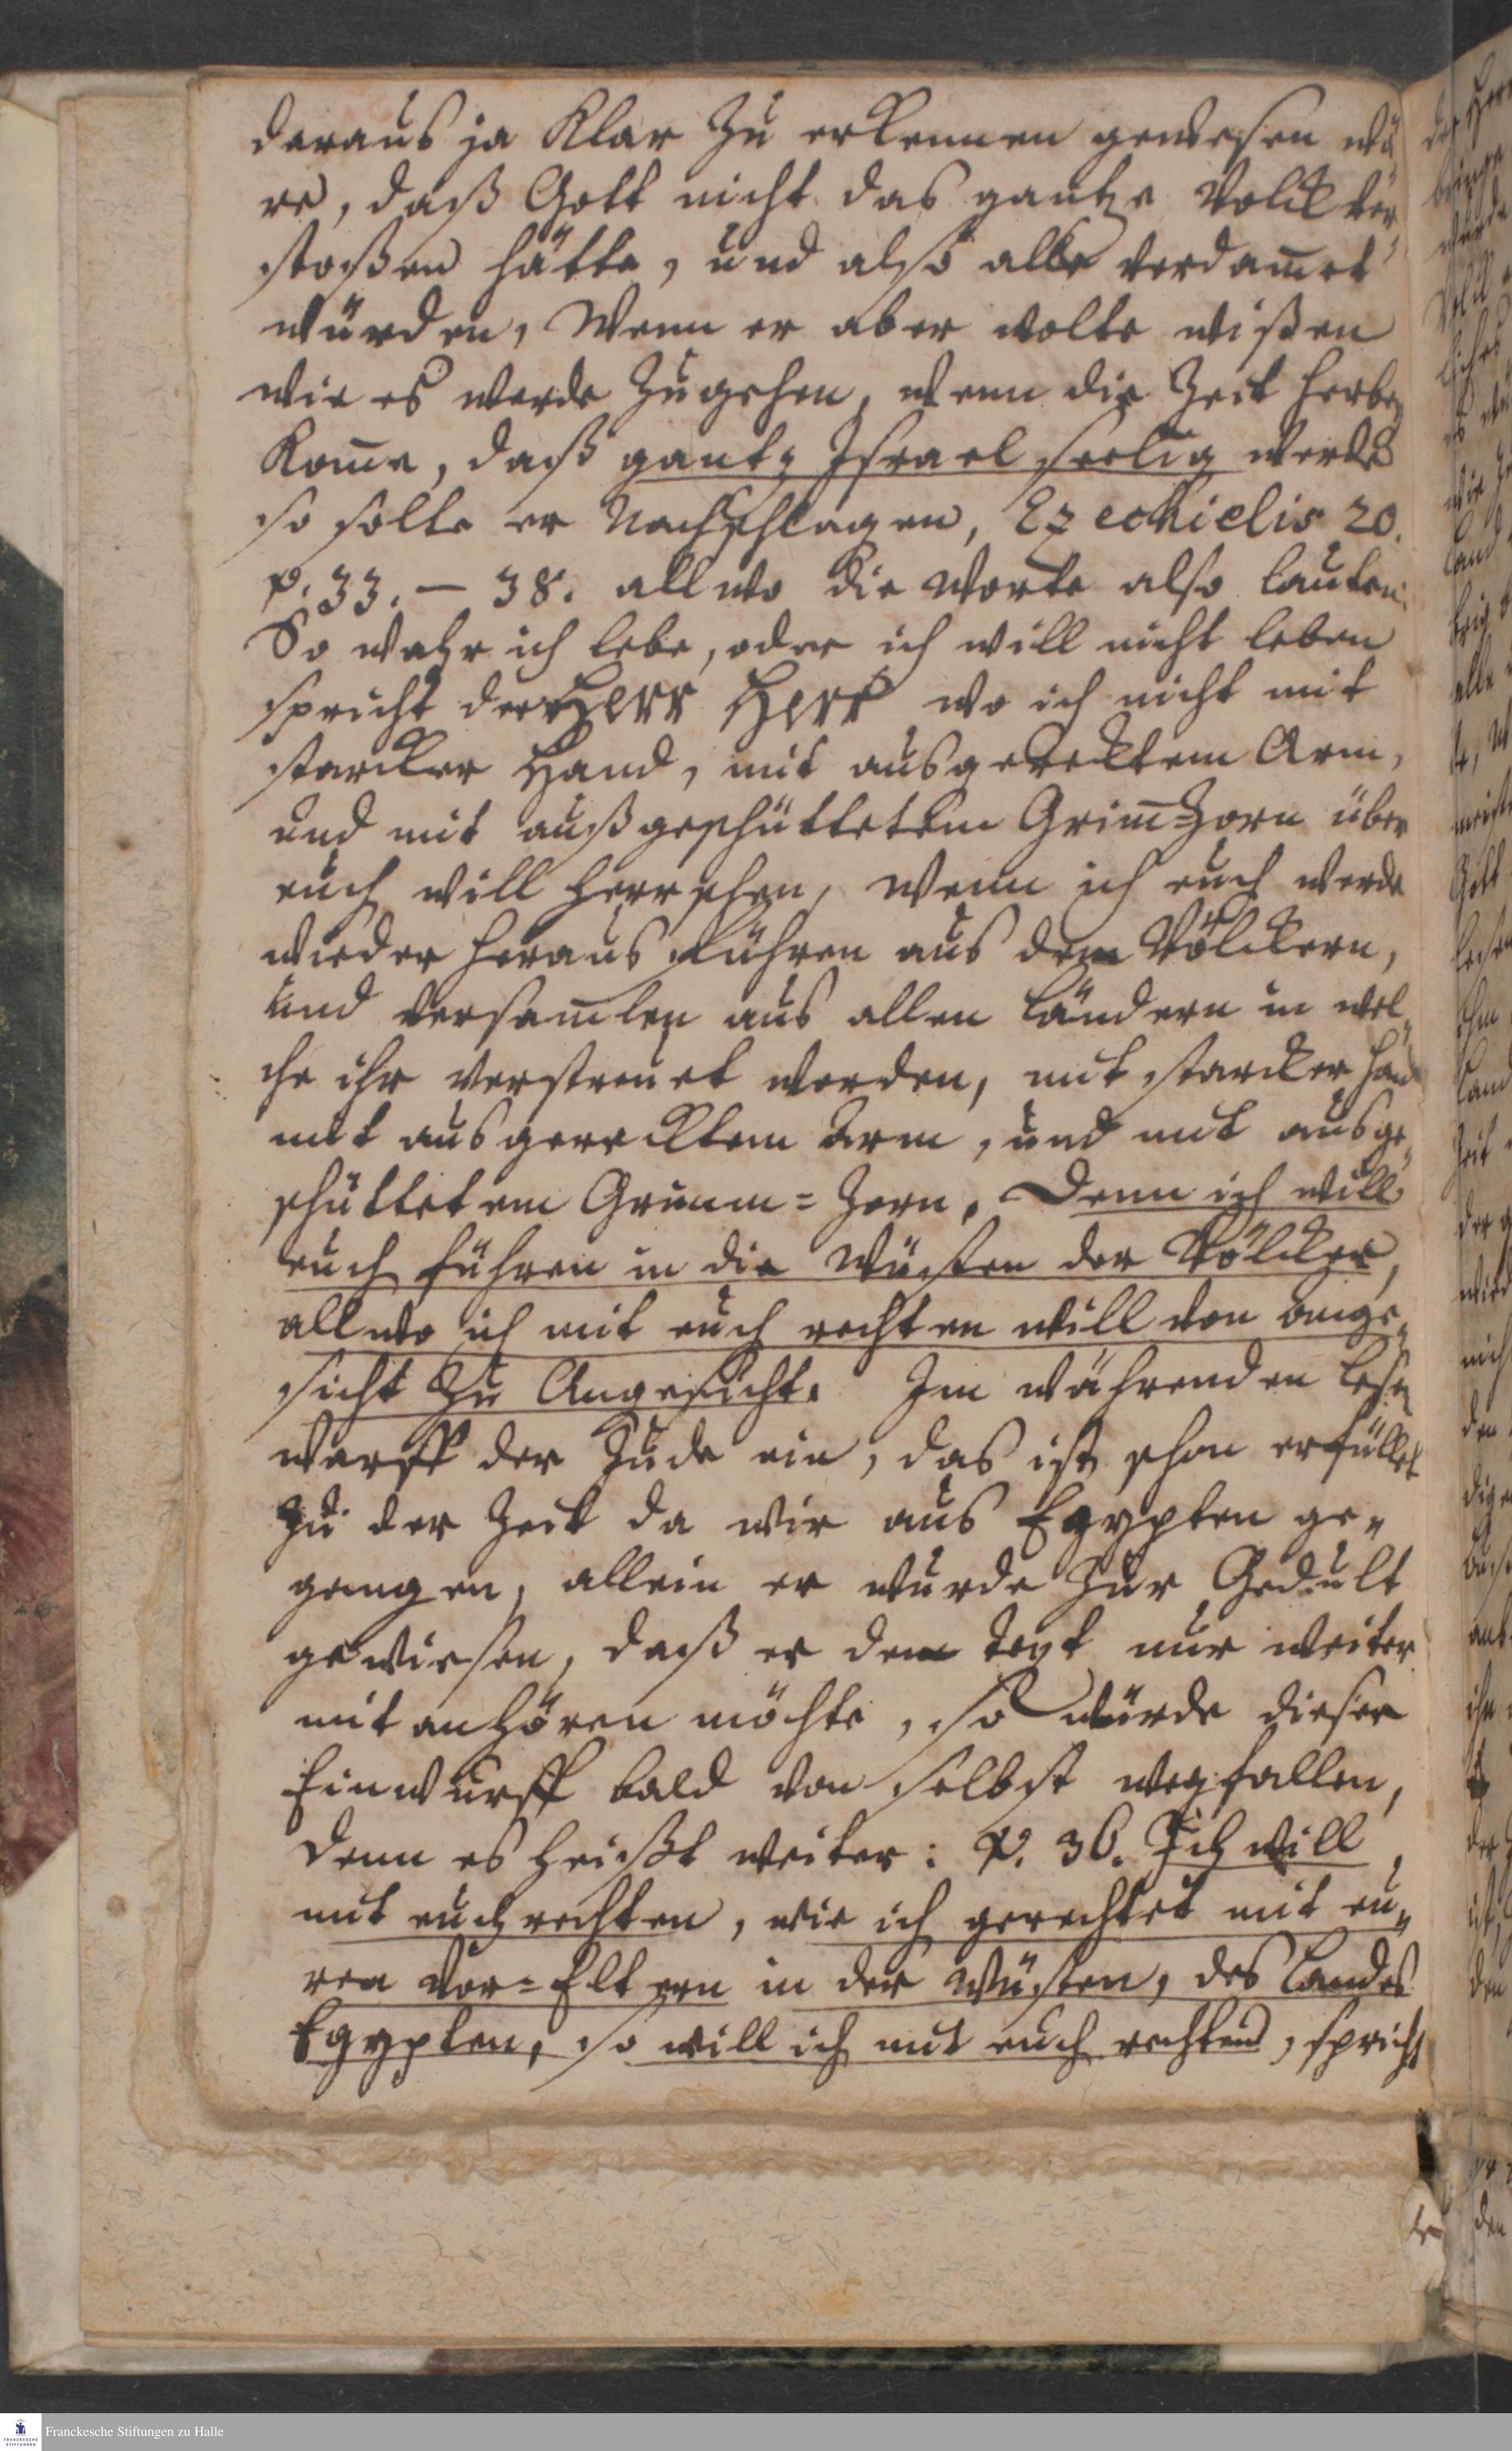 daraus ja klar zu erkennen gewesen wä
re, daß Gott nicht das gantze Volck ver
stoßen hätte, und also alle verdam̄et
würden, Wenn er aber wolte wißen
wie es werde zugehen, wenn die Zeit herbey
kom̄e, daß gantz Israel seelig werde
so solte er Nachschlagen, Ezechielis 20.
v. 33. – 38. allwo die Worte also lauten:
So wahr ich lebe, oder ich will nicht leben
spricht der Herr Herr wo ich nicht mit
starcker Hand, mit ausgerecktem Arm,
und mit außgeschüttetem Grim̄-Zorn über
euch will herrschen, Wenn ich euch werde
wieder heraus führen aus den Völckern,
und versam̄len aus allen Ländern in wel„
che ihr verstreuet worden, mit starcker Hand
mit ausgerecktem Arm, und mit ausge„
schüttetem Grimm=Zorn. Denn ich will
euch führen in die Wüsten der Völcker,
allwo ich mit euch rechten will von ange„
sicht zu Angesicht. Im währenden lesen
warff der Jude ein, das ist schon erfüllet
zu der Zeit da wir aus Egypten ge„
gangen, allein er wurde zur Gedult
gewiesen, daß er den text nur weiter
mit anhören möchte, so würde dieser
Einwurff bald von selbst wegfallen,
denn es heißt weiter: v. 36. Ich will
mit euch rechten, wie ich gerechtet mit eu„
ren Vor=Eltern in der Wüsten, des Landes
Egypten, so will ich mit euch rechten, spricht
Franckesche Stiftungen zu Halle